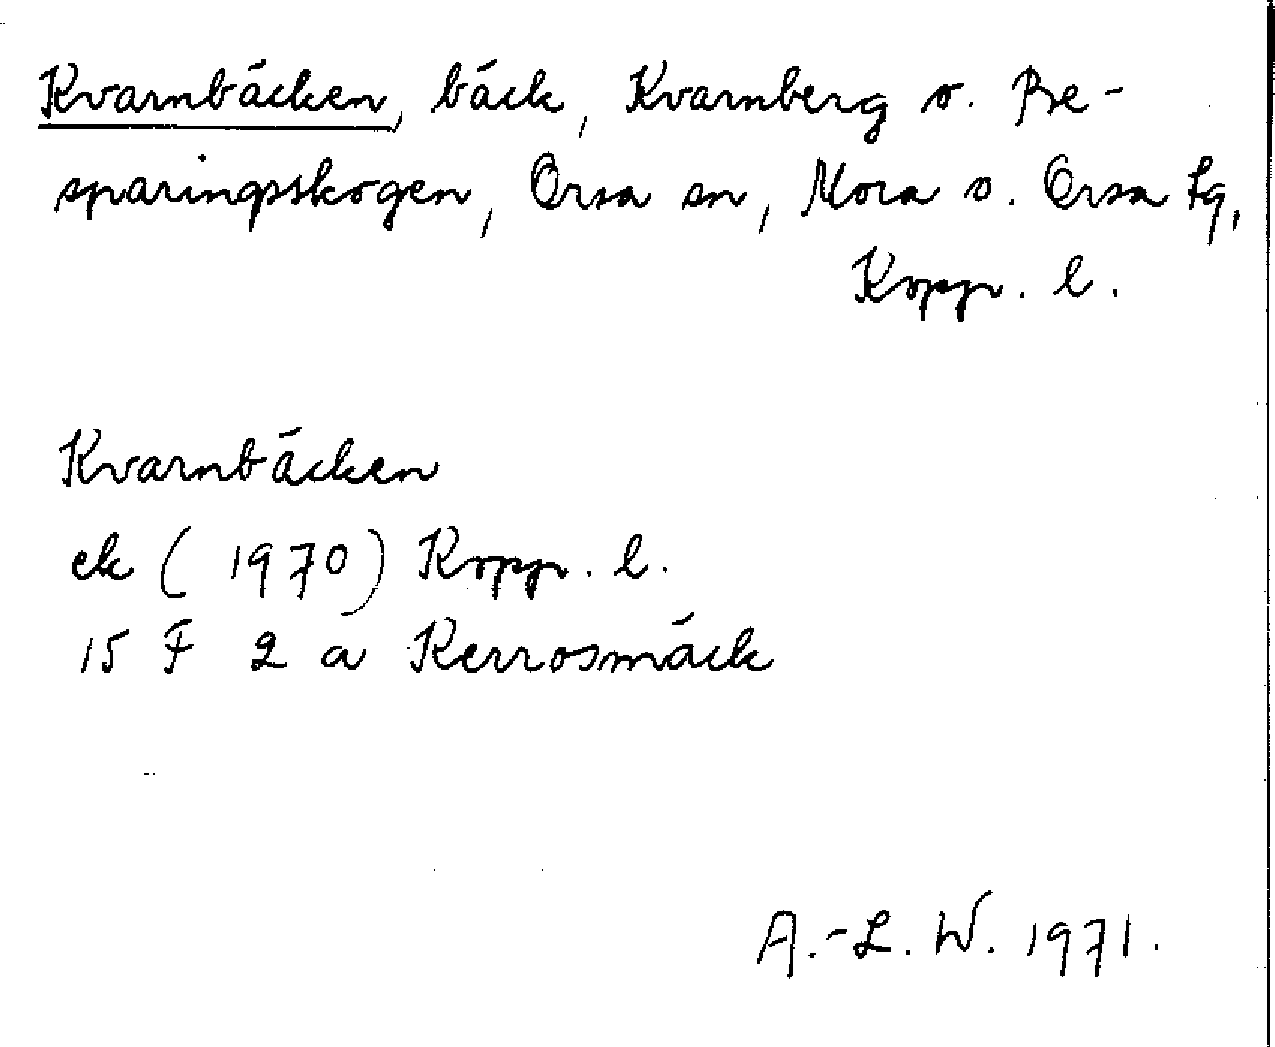 Kvarnbäcken, bäck, Kvarnberg o. Be-
sparingsskogen, Orsa sn, Mora o. Orsa tg,
Kopp. l.
Kvarnbäcken
ek (1970) Kopp. l.
15 F 2 a Kerrosmäck
A.-L. W. 1971.